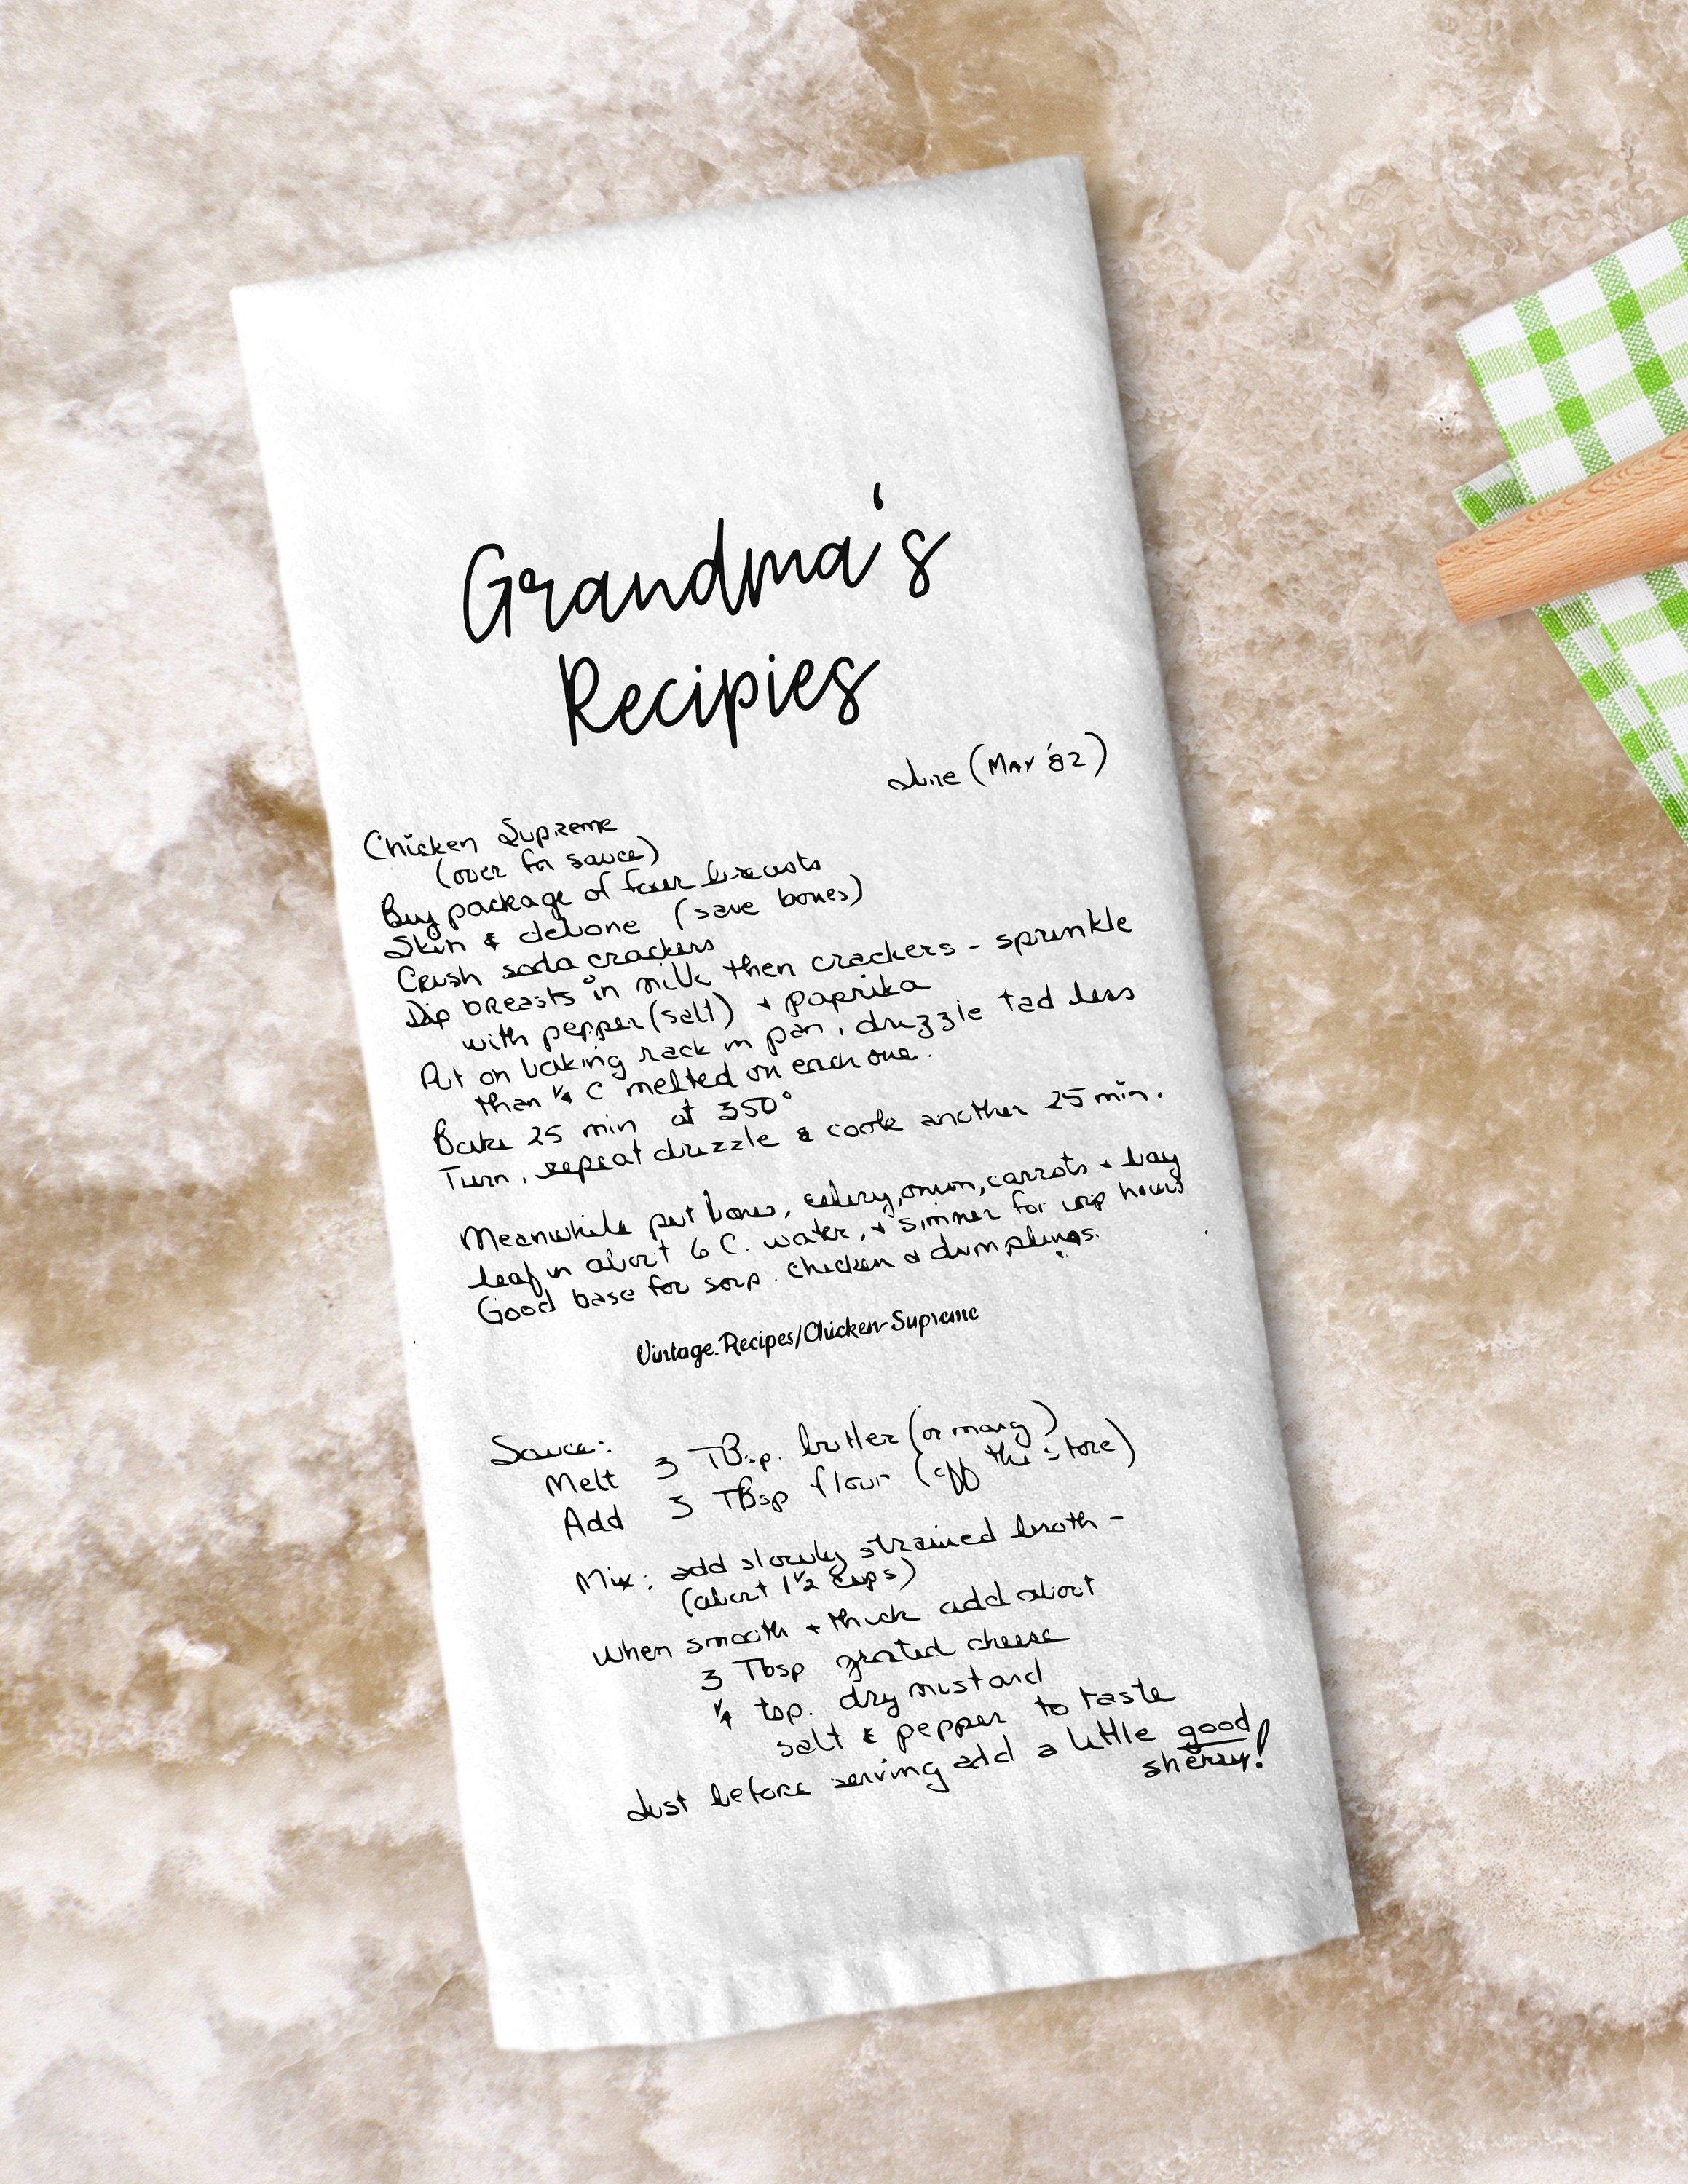 Grandma's
Recipies
June (MAY '82)
Chicken Supreme
(over for sauce)
Buy package of four breasts
Skin & debone (save bones)
Crush soda crackers
Dip breasts in milk then crackers - sprinkle
with pepper (salt) + paprika
Put on baking rack in pan, drizzle tad less
than 1/4 C melted on each one.
Bake 25 min at 350°
Turn, repeat drizzle & cook another 25 min.
Meanwhile put bones, celery, onion, carrots + bay
leaf in about 6 C. water, + simmer for hours
Good base for soup. chicken & dumplings.
Vintage.Recipes/Chicken-Supreme
Sauce:
Melt 3 TBsp. butter (or marg)
Add 3 TBsp flour (off the stove)
Mix: add slowly strained broth -
(about 1 1/2 cups)
When smooth + thick add about
3 Tbsp grated cheese
1/4 tsp. dry mustard
salt & pepper to taste
Just before serving add a little good
sherry!